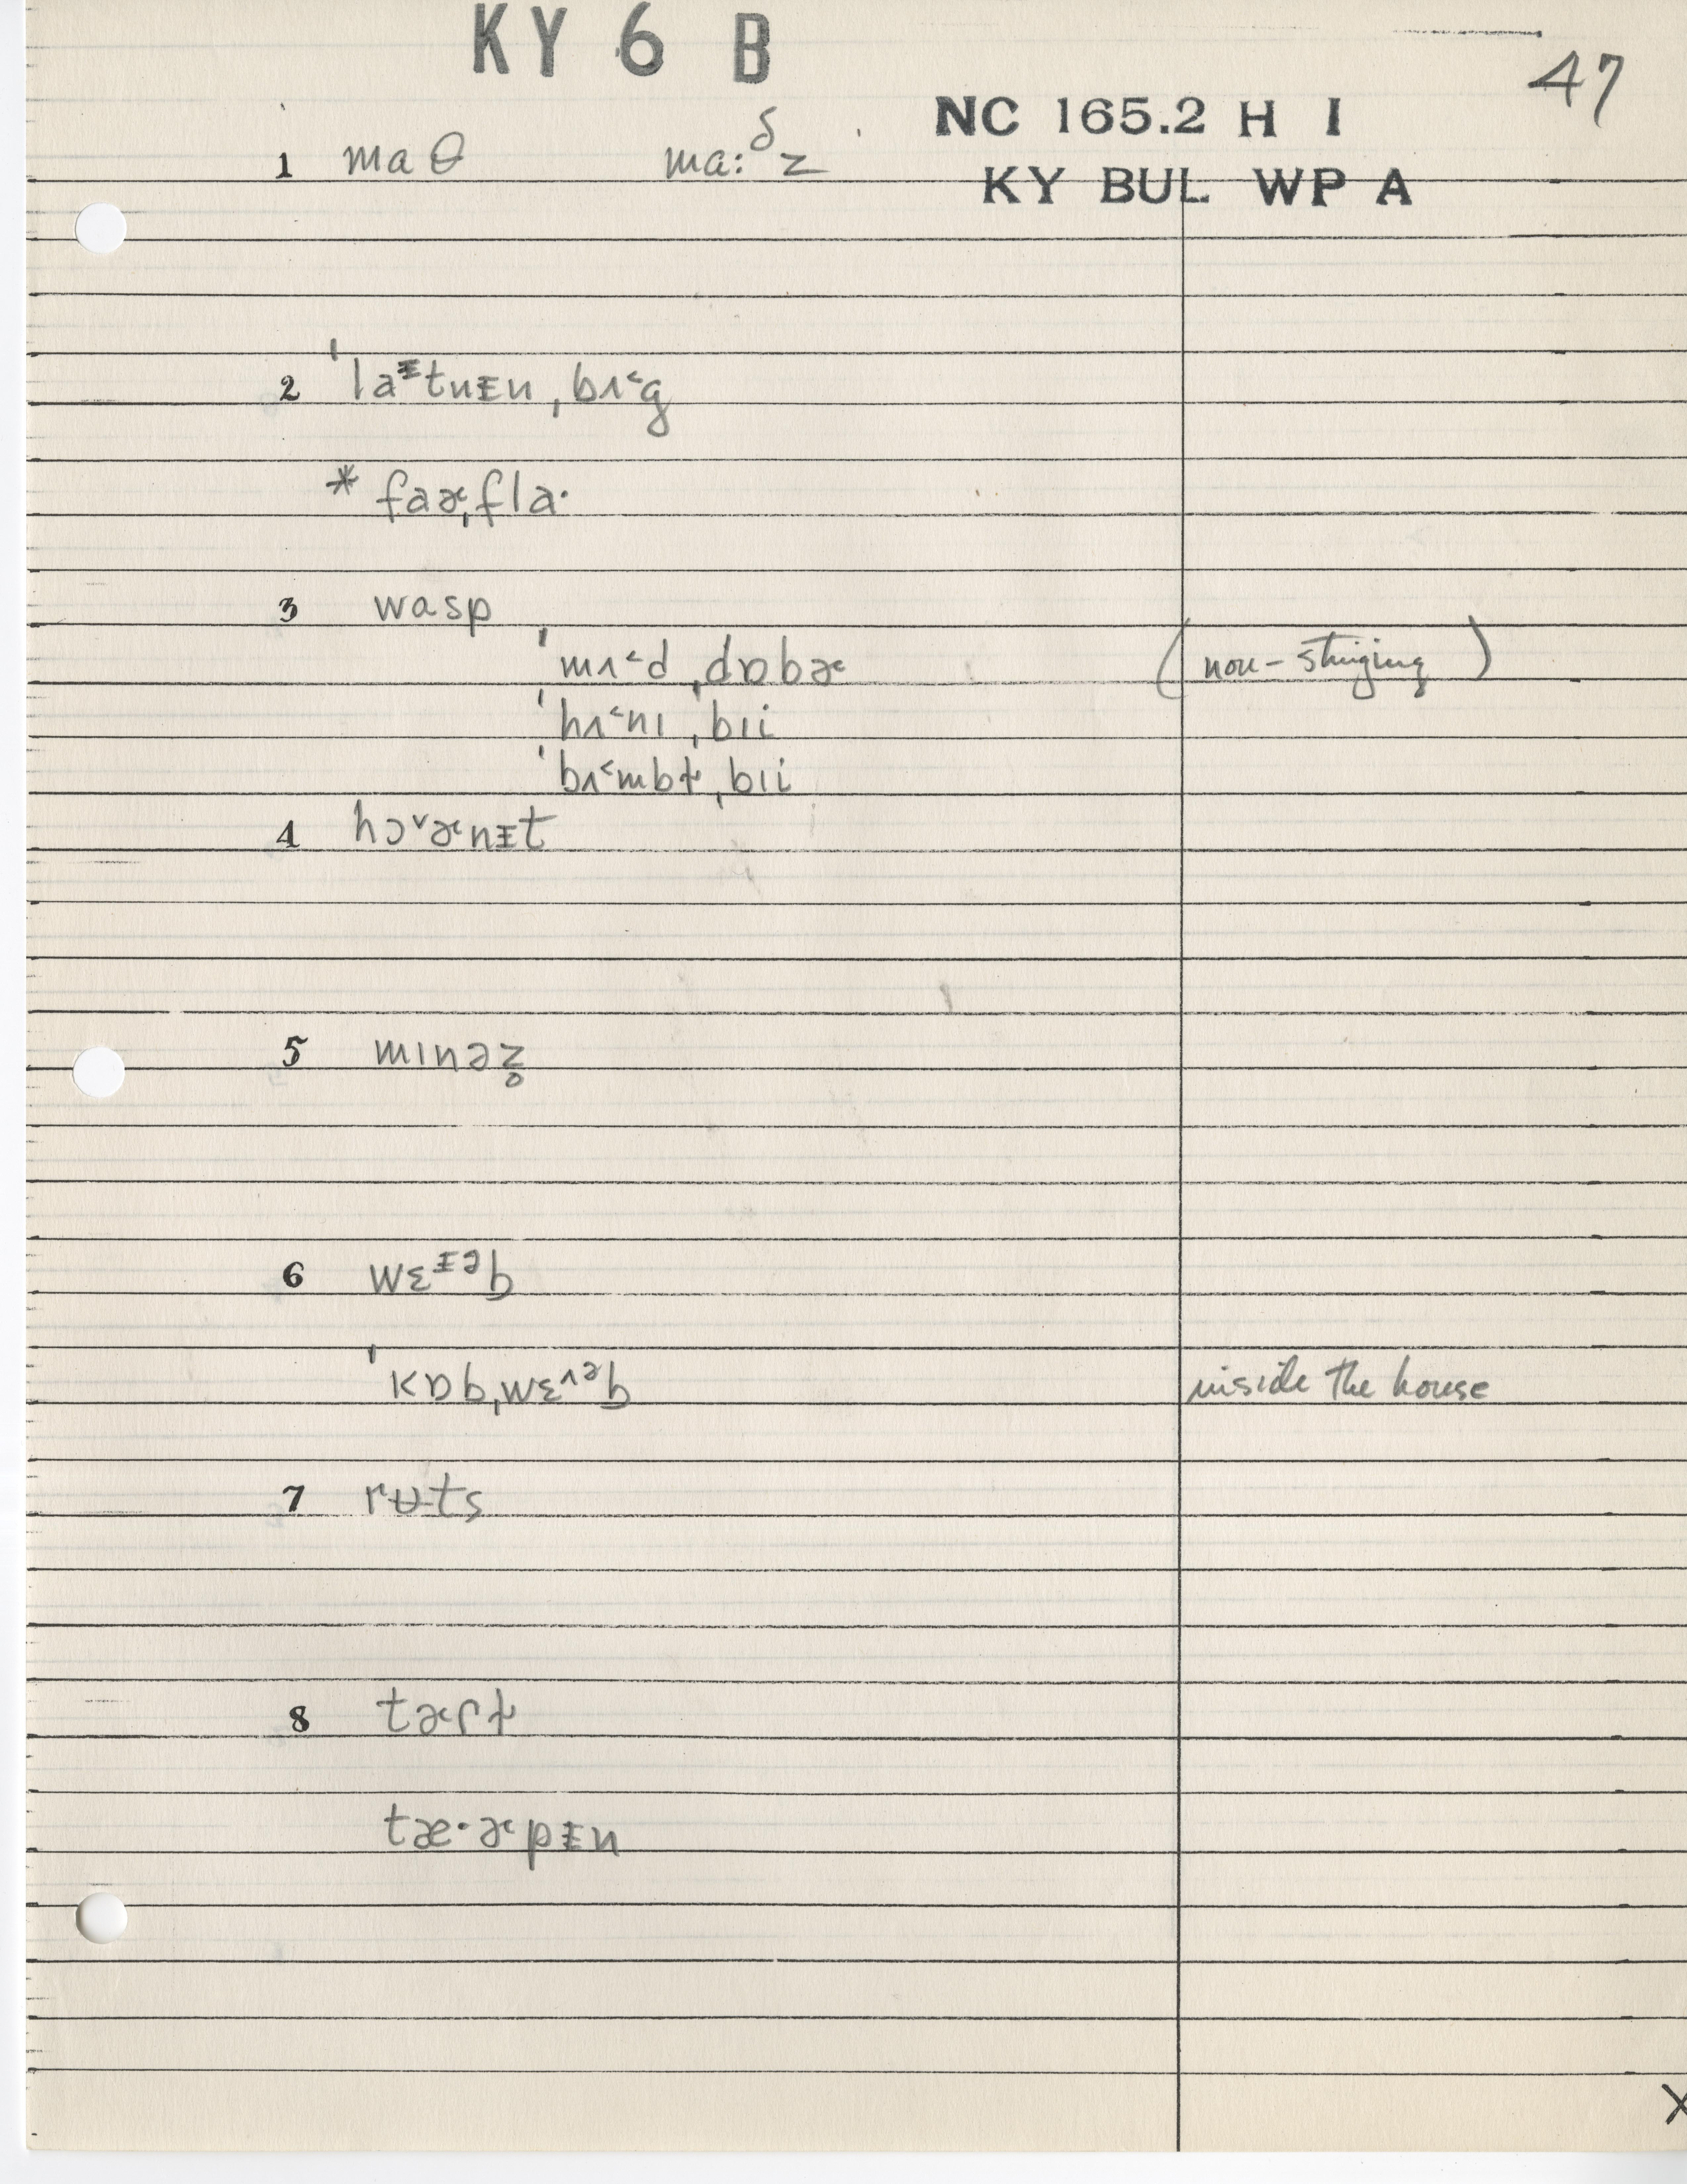 KY 6 B
47
NC 165.2 H I
KY BUL WP A
1 maθ ma:ᵟz
2 ˈlaᵻtnᵻn ˌbʌ˂g
* faɚˌflaˑ
3 wasp
ˈmʌ˂d ˌdɒbɚ (non-stinging)
ˈhʌ˂nɪ ˌbɪi
ˈbʌ˂mbɫ ˌbɪi
4 hɔ˅ɚnᵻt
5 mɪnəz̥
6 wɛᵻᵊb
ˈkɒbˌwɛ˄ᵊb inside the house
ˈkɑb
7 rʉts
8 tɚpɫ
tæˑɚpᵻn
X